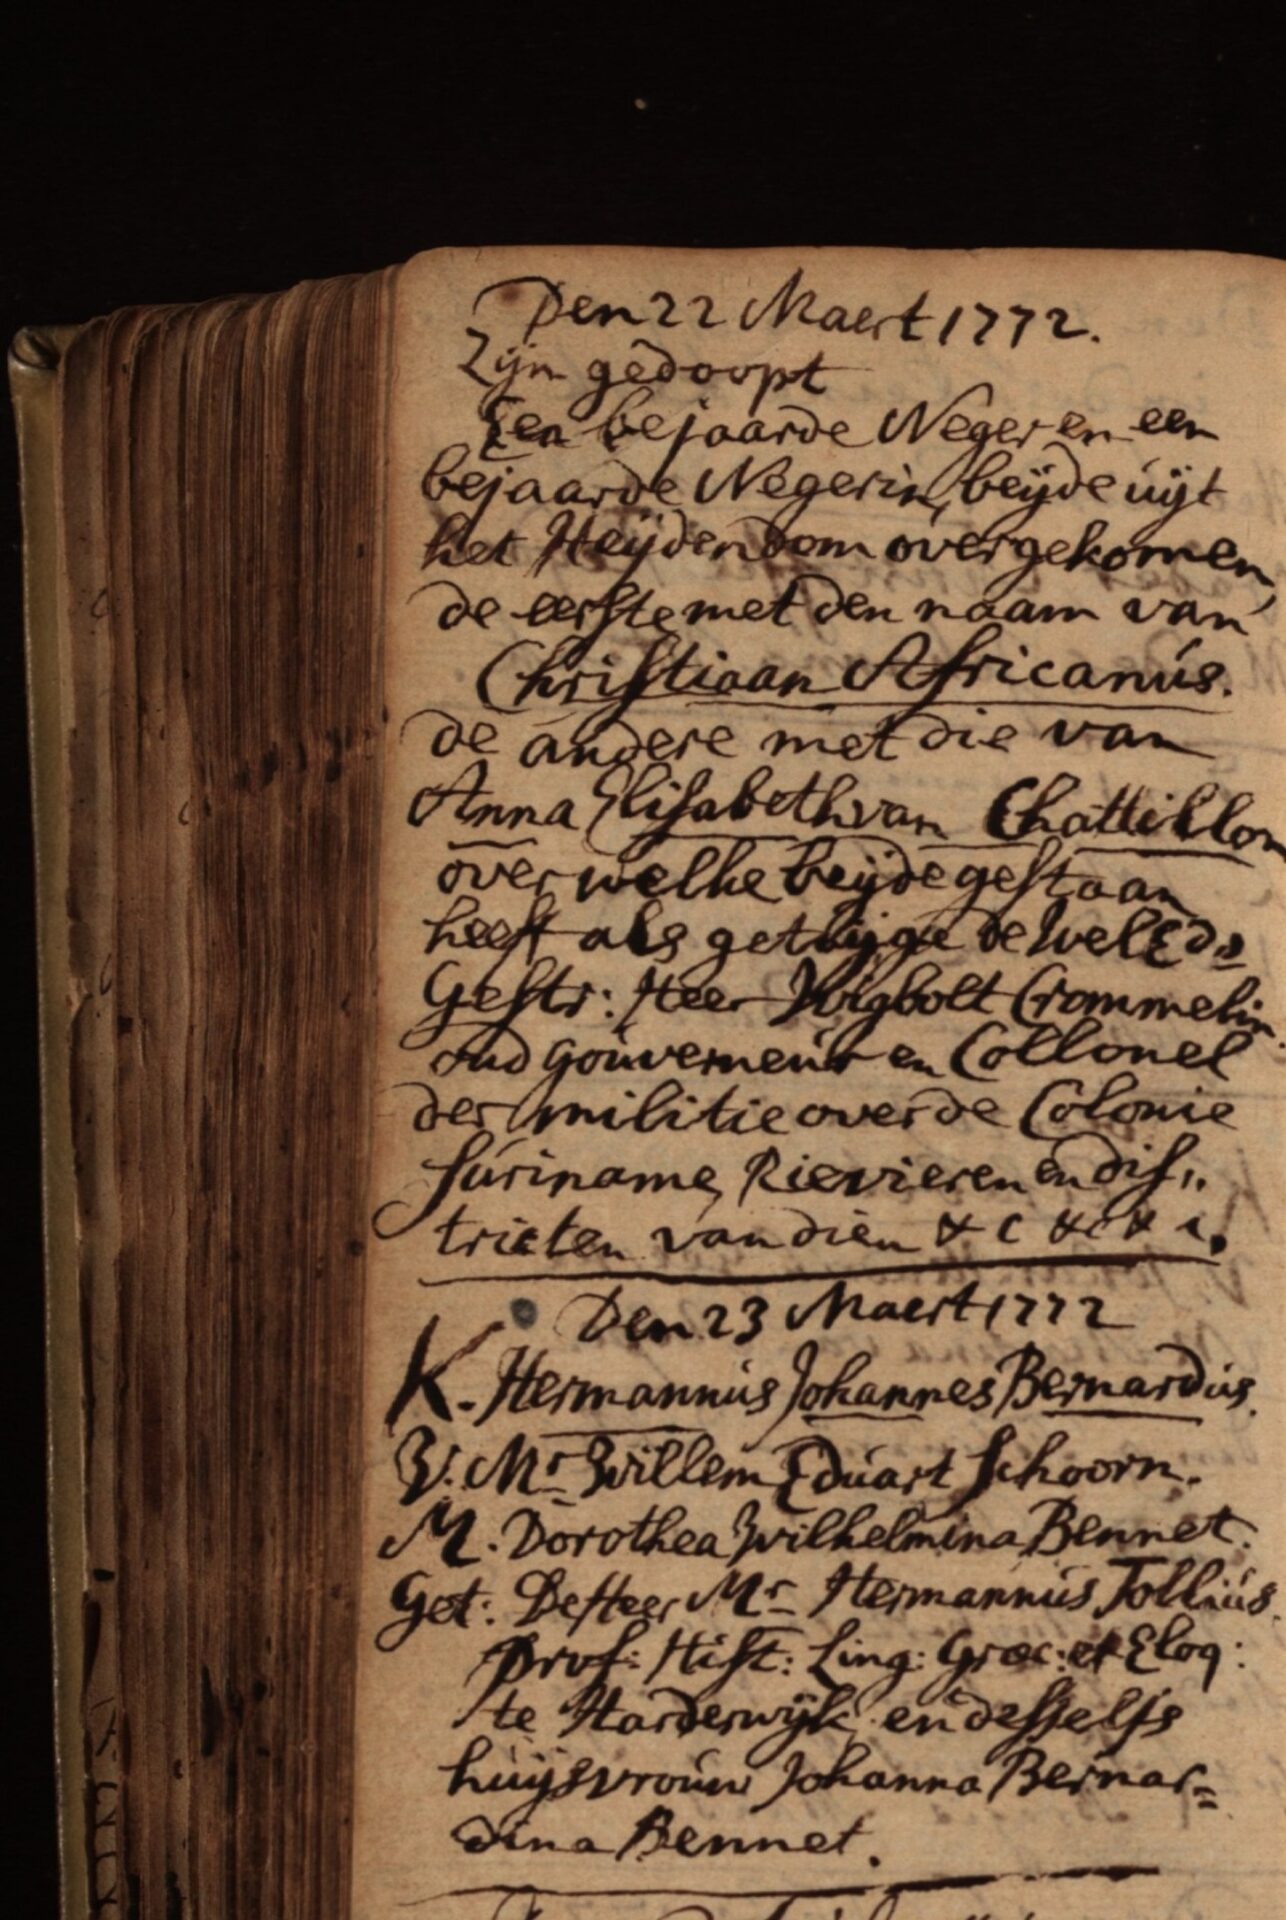 Den 22 Maert 1772.
Zijn gedoopt
Een bejaarde Neger en een
bejaarde Negerin, beijde uijt
het Heijdendom overgekomen,
de eerste met den naam van
Christiaan Africanus.
de andere met die van
Anna Elisabeth van Chattillon
over welke beijde gestaan
heeft als getuijge de WelEd=
Gestr: Heer Wigbolt Crommelin.
oud gouverneur en Collonel
der militie over de Colonie
Suriname, Rievieren en dis,,
tricten van dien &c &c &c.
Den 23 Maert 1772
K. Hermannus Johannes Bernardus.
V. Mr Willem Eduart Schoorn.
M. Dorothea Wilhelmina Bennet.
Get: De Heer Mr Hermannus Tollius
prof: Hist: Ling: Græc: et Eloq:
te Harderwijk en desselfs
huijsvrouw Johanna Bernar=
dina Bennet.